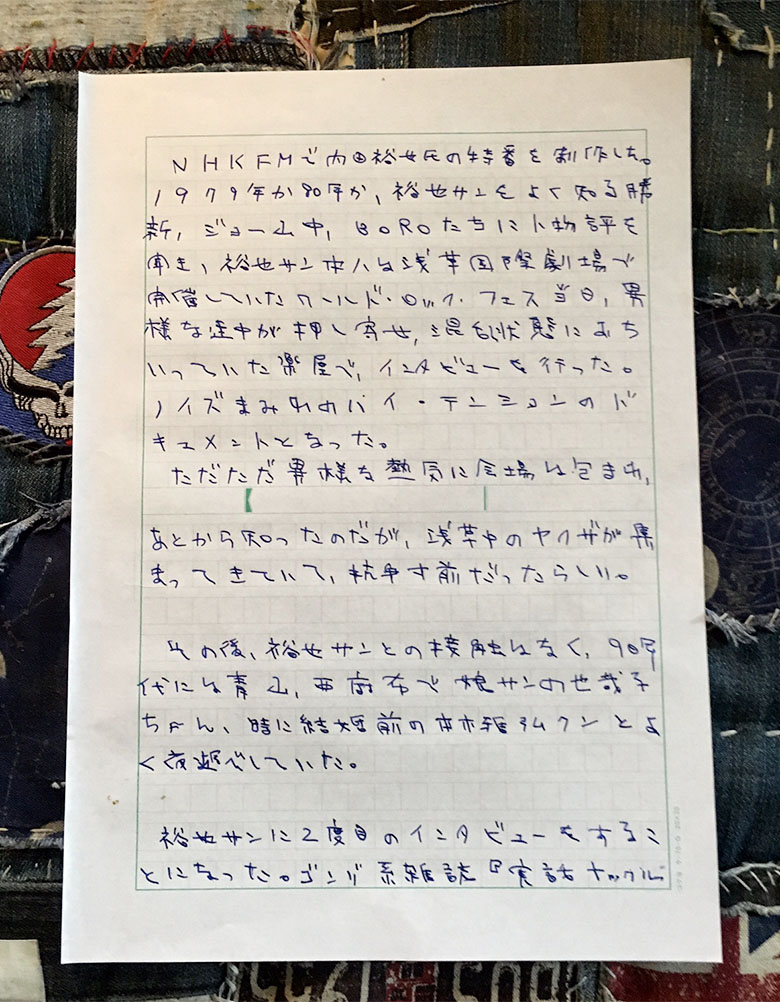 NHKFMで内田裕也氏の特番を制作した。
1979年か80年か、裕也サンをよく知る勝
新，ジョー山中，BOROたちに人物評を
聞き，裕也サン本人は浅草国際劇場で
開催していたワールド・ロック・フェス当日，異
様な連中が押し寄せ，混乱状態におち
いっていた楽屋で，インタビューを行った。
ノイズまみれのハイ・テンションのド
キュメントとなった。
ただただ異様な熱気に会場は包まれ，
あとから知ったのだが，浅草中のヤクザが集
まってきていて，抗争寸前だったらしい。
その後、裕也サンとの接触はなく，90年
代には青山，西麻布で娘サンの也哉子
ちゃん、時に結婚前の本木雅弘クンとよ
く夜遊びしていた。
裕也サンに2度目のインタビューをするこ
とになった。ゴシップ系雑誌『実話ナックル